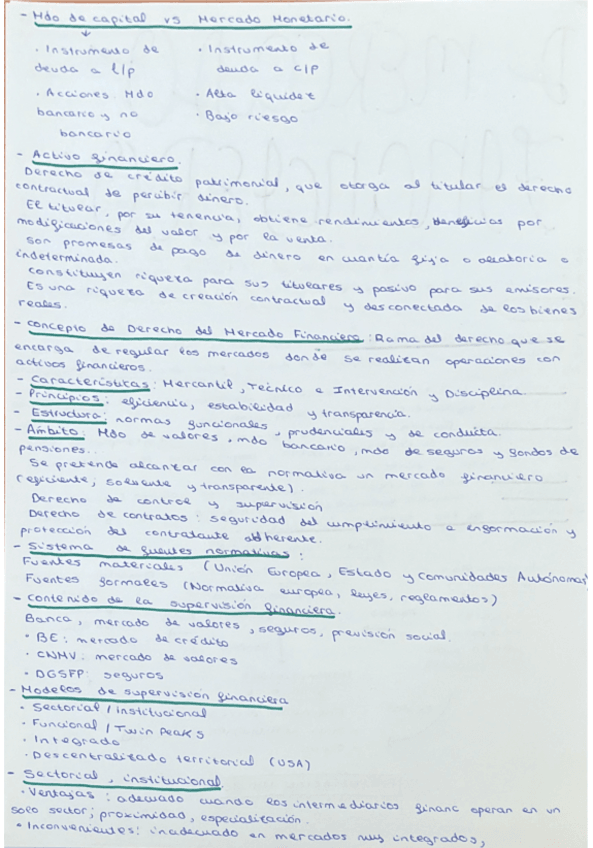 - Mdo de capital vs Mercado Monetario.
· Instrumento de deuda a l/p
· Acciones Mdo bancario y no bancario
· Instrumento de deuda a c/p
· Alta liquidez
· Bajo riesgo
- Activo financiero.
Derecho de crédito patrimonial, que otorga al titular el derecho
contractual de percibir dinero.
El titular, por su tenencia, obtiene rendimientos, beneficios por
modificaciones del valor y por la venta.
Son promesas de pago de dinero en cuantía fija o aleatoria o
indeterminada.
Constituyen riqueza para sus titulares y pasivo para sus emisores.
Es una riqueza de creación contractual y desconectada de los bienes
reales.
- Concepto de Derecho del Mercado Financiero: Rama del derecho que se
encarga de regular los mercados donde se realizan operaciones con
activos financieros.
- Características: Mercantil, Técnico e Intervención y Disciplina.
- Principios: eficiencia, estabilidad y transparencia.
- Estructura: normas funcionales, prudenciales y de conducta.
- Ámbito: Mdo de valores, mdo bancario, mdo de seguros y fondos de
pensiones..
Se pretende alcanzar con la normativa un mercado financiero
(eficiente, solvente y transparente).
Derecho de control y supervisión
Derecho de contratos: seguridad del cumplimiento e información y
protección del contratante adherente.
- Sistema de fuentes normativas:
Fuentes materiales (Unión Europea, Estado y Comunidades Autónomas)
Fuentes formales (Normativa europea, leyes, reglamentos)
- Contenido de la supervisión financiera.
Banca, mercado de valores, seguros, previsión social.
· BE: mercado de crédito
· CNMV: mercado de valores
· DGSFP: seguros
- Modelos de supervisión financiera
· Sectorial / institucional
· Funcional / Twin Peaks
· Integrado
· Descentralizado territorial (USA)
- Sectorial, institucional.
· Ventajas: adecuado cuando los intermediarios financ operan en un
solo sector; proximidad, especialización.
· Inconvenientes: inadecuado en mercados muy integrados,